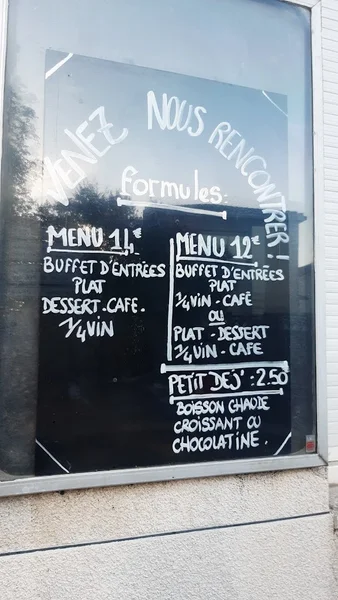 VENEZ NOUS RENCONTRER !
formules.
MENU 14€
BUFFET D'ENTRÉES
PLAT
DESSERT - CAFE.
1/4 VIN
MENU 12€
BUFFET D'ENTRÉES
PLAT
1/4 VIN - CAFÉ
OU
PLAT - DESSERT
1/4 VIN - CAFE
PETIT DEJ' : 2.50€
BOISSON CHAUDE
CROISSANT OU
CHOCOLATINE.